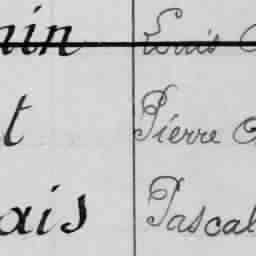 nin Louis
t Pierre
ais Pascal